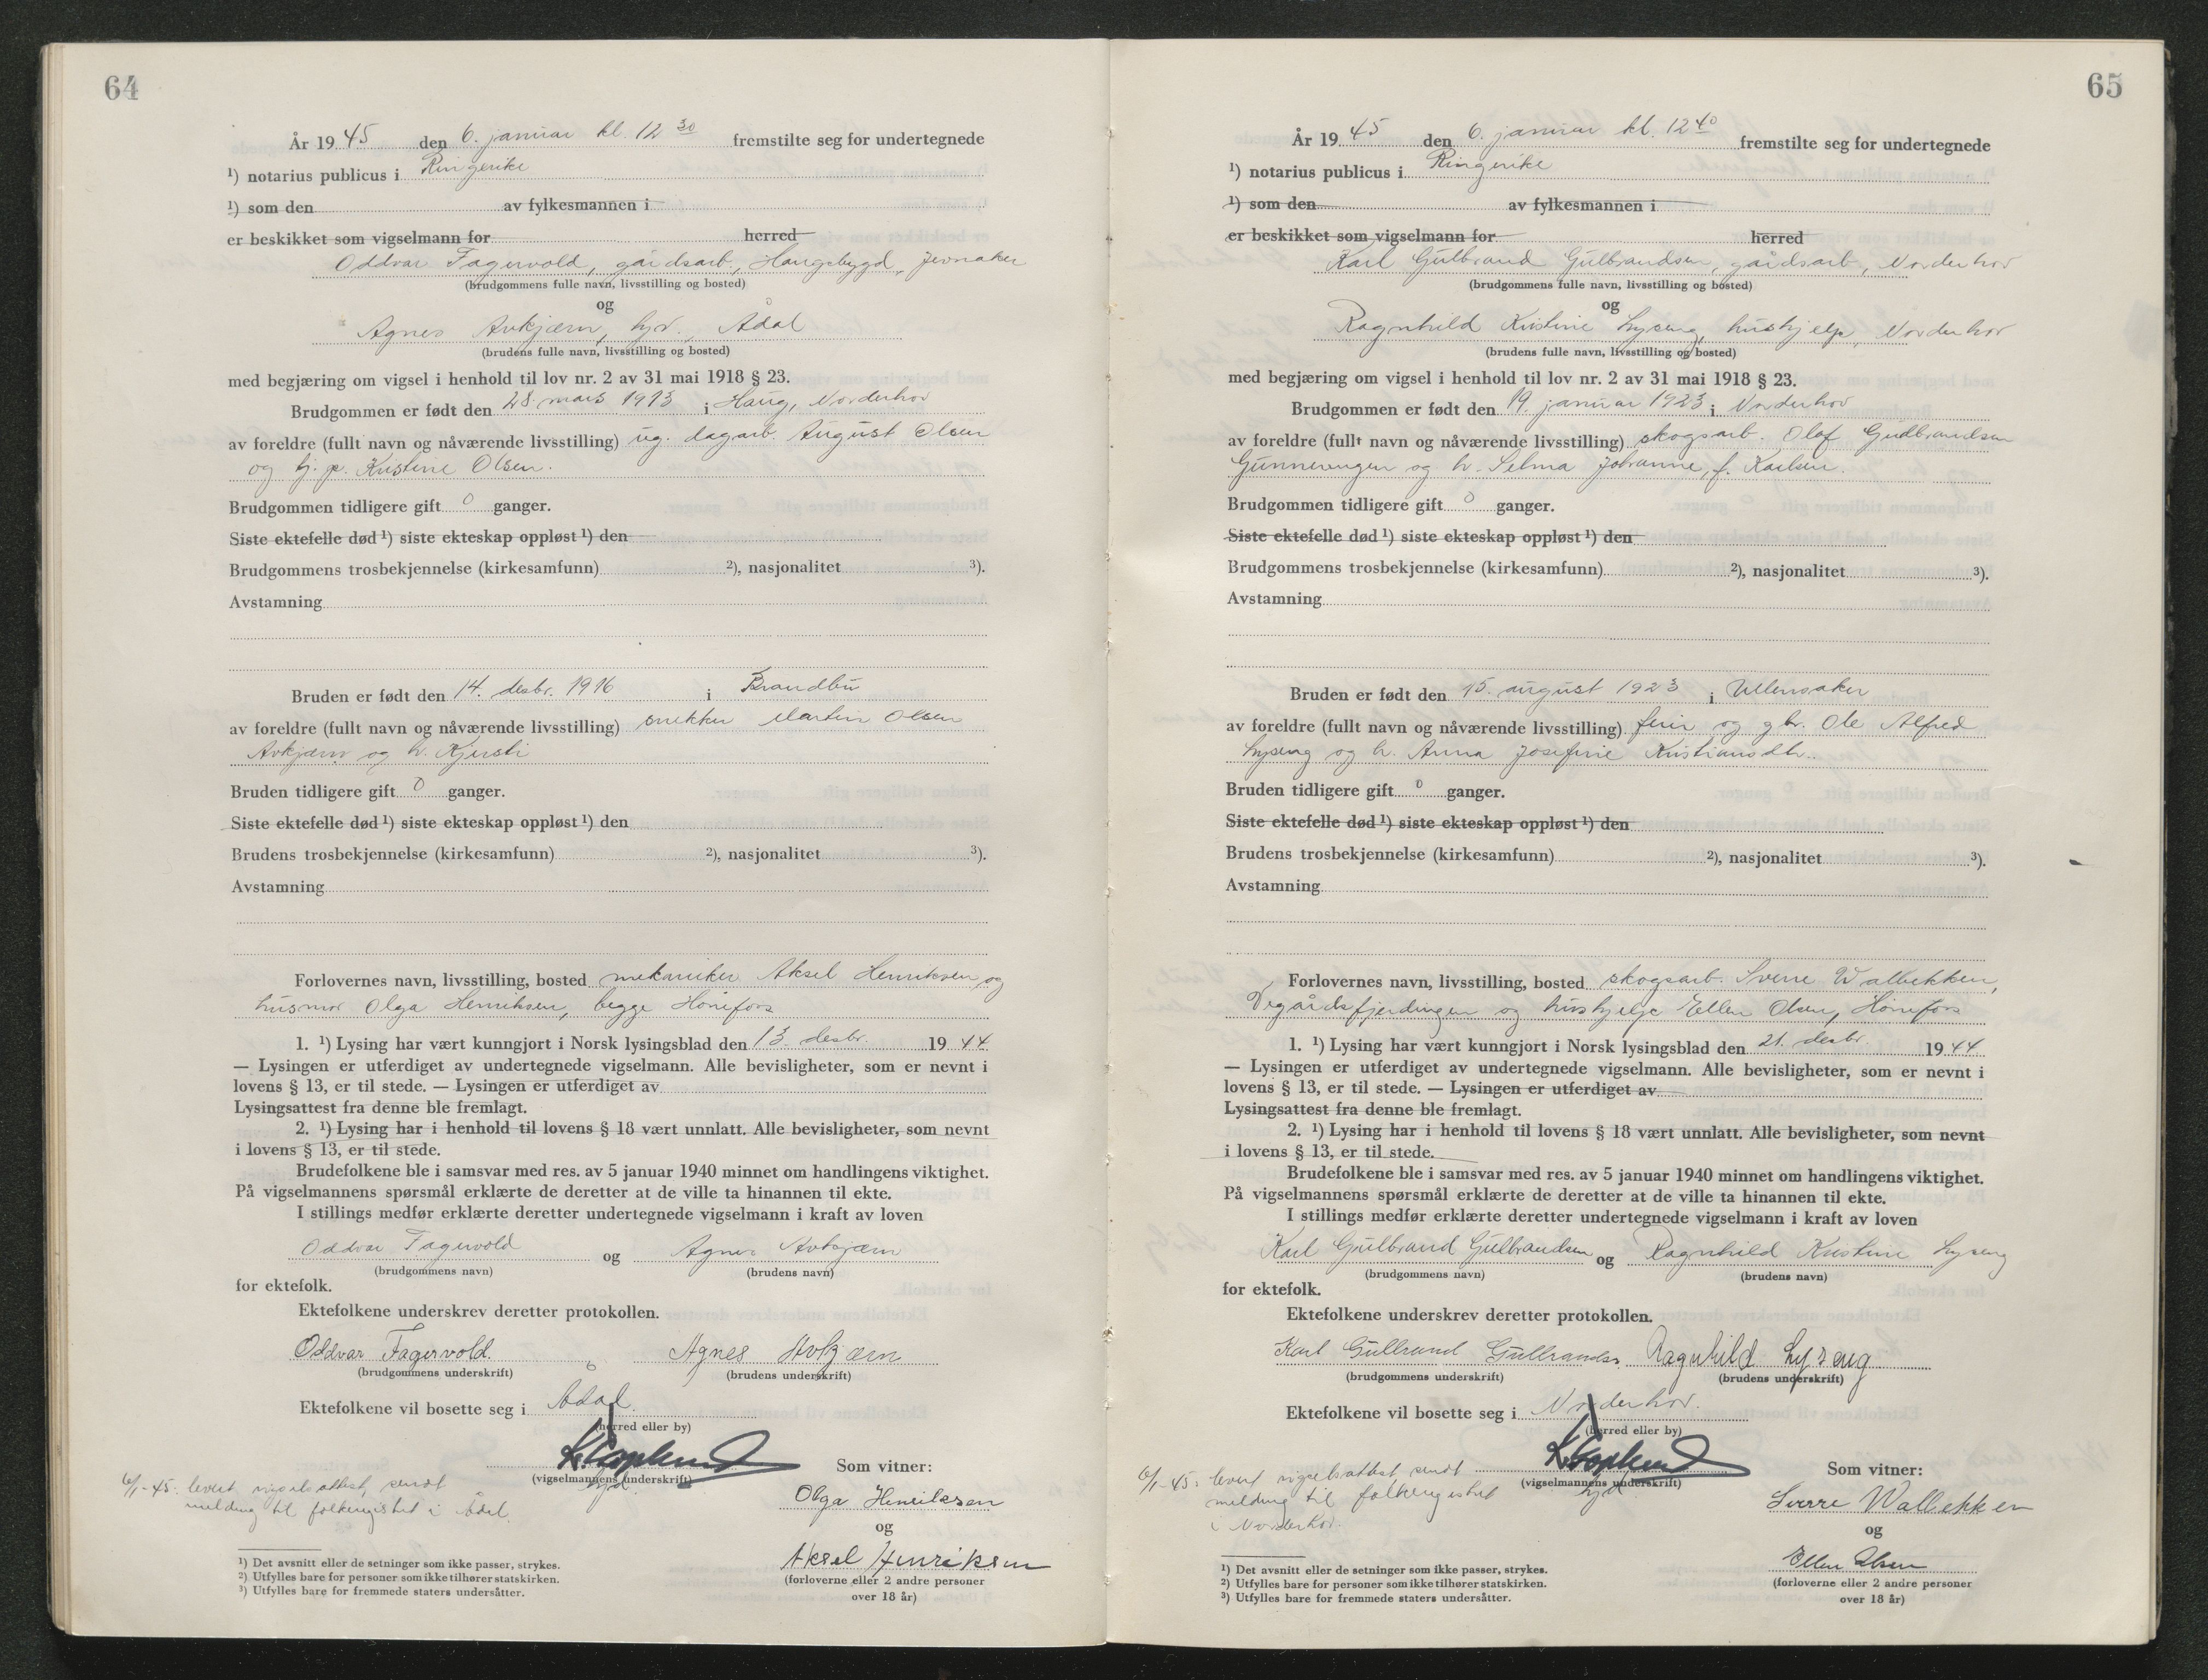 64
År 1945 den 6. januar kl. 12 30 fremstilte seg for undertegnede
¹) notarius publicus i Ringerike
¹) som den av fylkesmannen i
er beskikket som vigselmann for herred
Oddvar Fagervold, gårdsarb., Haugsbygd, Jevnaker
(brudgommens fulle navn, livsstilling og bosted)
og
Agnes Avkjærn, Ådal
(brudens fulle navn, livsstilling og bosted)
med begjæring om vigsel i henhold til lov nr. 2 av 31 mai 1918 § 23.
Brudgommen er født den 28. mars 1913 i Haug, Norderhov
av foreldre (fullt navn og nåværende livsstilling) ug. dagarb. August Olsen
og tj. p. Kristine Olsen.
Brudgommen tidligere gift 0 ganger.
Siste ektefelle død ¹) siste ekteskap oppløst ¹) den
Brudgommens trosbekjennelse (kirkesamfunn) ²), nasjonalitet ³).
Avstamning
Bruden er født den 14. desbr. 1916 i Brandbu
av foreldre (fullt navn og nåværende livsstilling) snekker Martin Olsen
Avkjærn og h. Kjersti
Bruden tidligere gift 0 ganger.
Siste ektefelle død ¹) siste ekteskap oppløst ¹) den
Brudens trosbekjennelse (kirkesamfunn) ²), nasjonalitet ³).
Avstamning
Forlovernes navn, livsstilling, bosted mekaniker Aksel Henriksen og
husmor Olga Henriksen, begge Hønefoss
1. ¹) Lysing har vært kunngjort i Norsk lysingsblad den 13. desbr. 1944
— Lysingen er utferdiget av undertegnede vigselmann. Alle bevisligheter, som er nevnt i
lovens § 13, er til stede. — Lysingen er utferdiget av
Lysingsattest fra denne ble fremlagt.
2. ¹) Lysing har i henhold til lovens § 18 vært unnlatt. Alle bevisligheter, som nevnt
i lovens § 13, er til stede.
Brudefolkene ble i samsvar med res. av 5 januar 1940 minnet om handlingens viktighet.
På vigselmannens spørsmål erklærte de deretter at de ville ta hinannen til ekte.
I stillings medfør erklærte deretter undertegnede vigselmann i kraft av loven
Oddvar Fagervold og Agnes Avkjærn
(brudgommens navn) (brudens navn)
for ektefolk.
Ektefolkene underskrev deretter protokollen.
Oddvar Fagervold. Agnes Avkjærn
(brudgommens underskrift) (brudens underskrift)
Ektefolkene vil bosette seg i Ådal.
(herred eller by)
(vigselmannens underskrift) Som vitner:
6/1-45. levert vigselsattest, sendt
melding til folkeregistret i Ådal.
Olga Henriksen
og
Aksel Henriksen
(forloverne eller 2 andre personer
over 18 år)
¹) Det avsnitt eller de setninger som ikke passer, strykes.
²) Utfylles bare for personer som ikke tilhører statskirken.
³) Utfylles bare for fremmede staters undersåtter.
65
År 1945 den 6. januar kl. 12 40 fremstilte seg for undertegnede
¹) notarius publicus i Ringerike
¹) som den av fylkesmannen i
er beskikket som vigselmann for herred
Karl Gulbrand Gulbrandsen, gårdsarb., Norderhov
(brudgommens fulle navn, livsstilling og bosted)
og
Ragnhild Kristine Lyseng, hushjelp, Norderhov
(brudens fulle navn, livsstilling og bosted)
med begjæring om vigsel i henhold til lov nr. 2 av 31 mai 1918 § 23.
Brudgommen er født den 19. januar 1923 i Norderhov
av foreldre (fullt navn og nåværende livsstilling) skogsarb. Olaf Gudbrandsen
Gunnerengen og h. Selma Johanne, f. Karlsen.
Brudgommen tidligere gift 0 ganger.
Siste ektefelle død ¹) siste ekteskap oppløst ¹) den
Brudgommens trosbekjennelse (kirkesamfunn) ²), nasjonalitet ³).
Avstamning
Bruden er født den 15. august 1923 i Ullensaker
av foreldre (fullt navn og nåværende livsstilling) og gbr. Ole Alfred
Lyseng og h. Anna Josefine Kristiansdtr.
Bruden tidligere gift 0 ganger.
Siste ektefelle død ¹) siste ekteskap oppløst ¹) den
Brudens trosbekjennelse (kirkesamfunn) ²), nasjonalitet ³).
Avstamning
Forlovernes navn, livsstilling, bosted skogsarb. Sverre Walbekken,
Vegårdsfjerdingen og hushjelp Ellen Olsen, Hønefoss
1. ¹) Lysing har vært kunngjort i Norsk lysingsblad den 21. desbr. 1944
— Lysingen er utferdiget av undertegnede vigselmann. Alle bevisligheter, som er nevnt i
lovens § 13, er til stede. — Lysingen er utferdiget av
Lysingsattest fra denne ble fremlagt.
2. ¹) Lysing har i henhold til lovens § 18 vært unnlatt. Alle bevisligheter, som nevnt
i lovens § 13, er til stede.
Brudefolkene ble i samsvar med res. av 5 januar 1940 minnet om handlingens viktighet.
På vigselmannens spørsmål erklærte de deretter at de ville ta hinannen til ekte.
I stillings medfør erklærte deretter undertegnede vigselmann i kraft av loven
Karl Gulbrand Gulbrandsen og Ragnhild Kristine Lyseng
(brudgommens navn) (brudens navn)
for ektefolk.
Ektefolkene underskrev deretter protokollen.
Karl Gullrand Gullrandsen. Ragnhild Lyseng
(brudgommens underskrift) (brudens underskrift)
Ektefolkene vil bosette seg i Norderhov.
(herred eller by)
(vigselmannens underskrift) Som vitner:
6/1-45. levert vigselsattest, sendt
melding til folkeregistret
i Norderhov.
Sverre Wallekken
og
Ellen Olsen
(forloverne eller 2 andre personer
over 18 år)
¹) Det avsnitt eller de setninger som ikke passer, strykes.
²) Utfylles bare for personer som ikke tilhører statskirken.
³) Utfylles bare for fremmede staters undersåtter.